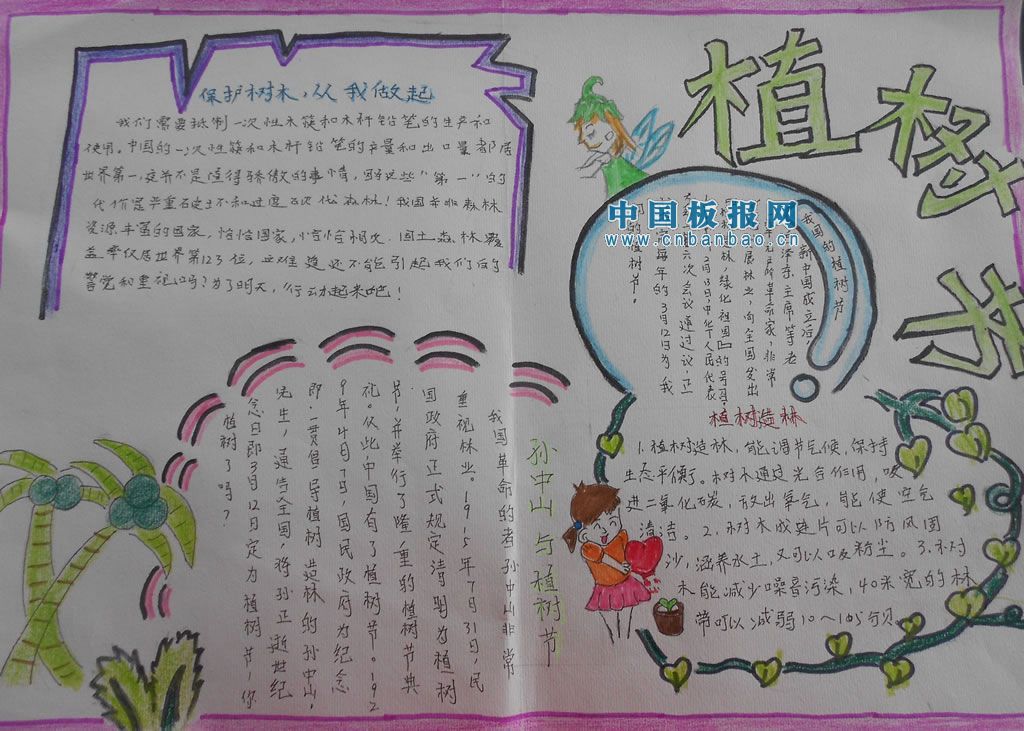 植树节
保护树木，从我做起
我们需要抵制一次性木筷和木杆铅笔的生产和
使用。中国的一次性筷和木杆铅笔的产量和出口量都居
世界第一，这并不是值得骄傲的事情，因为这些“第一”的
代价是严重破坏和过度砍伐森林！我国年非森林
资源丰富的国家，恰恰国家，恰恰相反，国土森林覆
盖率仅居世界第123位，这难道还不能引起我们的
警觉和重视吗？为了明天，行动起来吧！
中国板报网
www.cnbanbao.cn
我国的植树节
新中国成立后，
泽东主席等老
革命家，非常
展林业，向全国发出
林，绿化祖国』的号召。
2月23日，中华人民代表
六次会议通过议，正
每年的3月12日为我
的植树节。
植树造林
1.植树造林，能调节气候，保持
生态平衡。树木通过光合作用，吸
进二氧化碳，放出氧气，能使空气
清洁。2.树木成片可以防风固
沙，涵养水土，又可以吸粉尘。3.树
木能减少噪音污染，40米宽的林
带可以减弱10~15分贝。
孙中山与植树节
我国革命的者孙中山非常
重视林业。1915年7月31日，民
国政府正式规定清明为植树
节，并举行了隆重的植树节典
礼。从此，中国有了植树节。192
9年4日7日，国民政府为纪念
即一贯倡导植树造林的孙中山
先生，通告全国，将孙正逝世纪
念日即3月12日定为植树节，你
植树了吗？